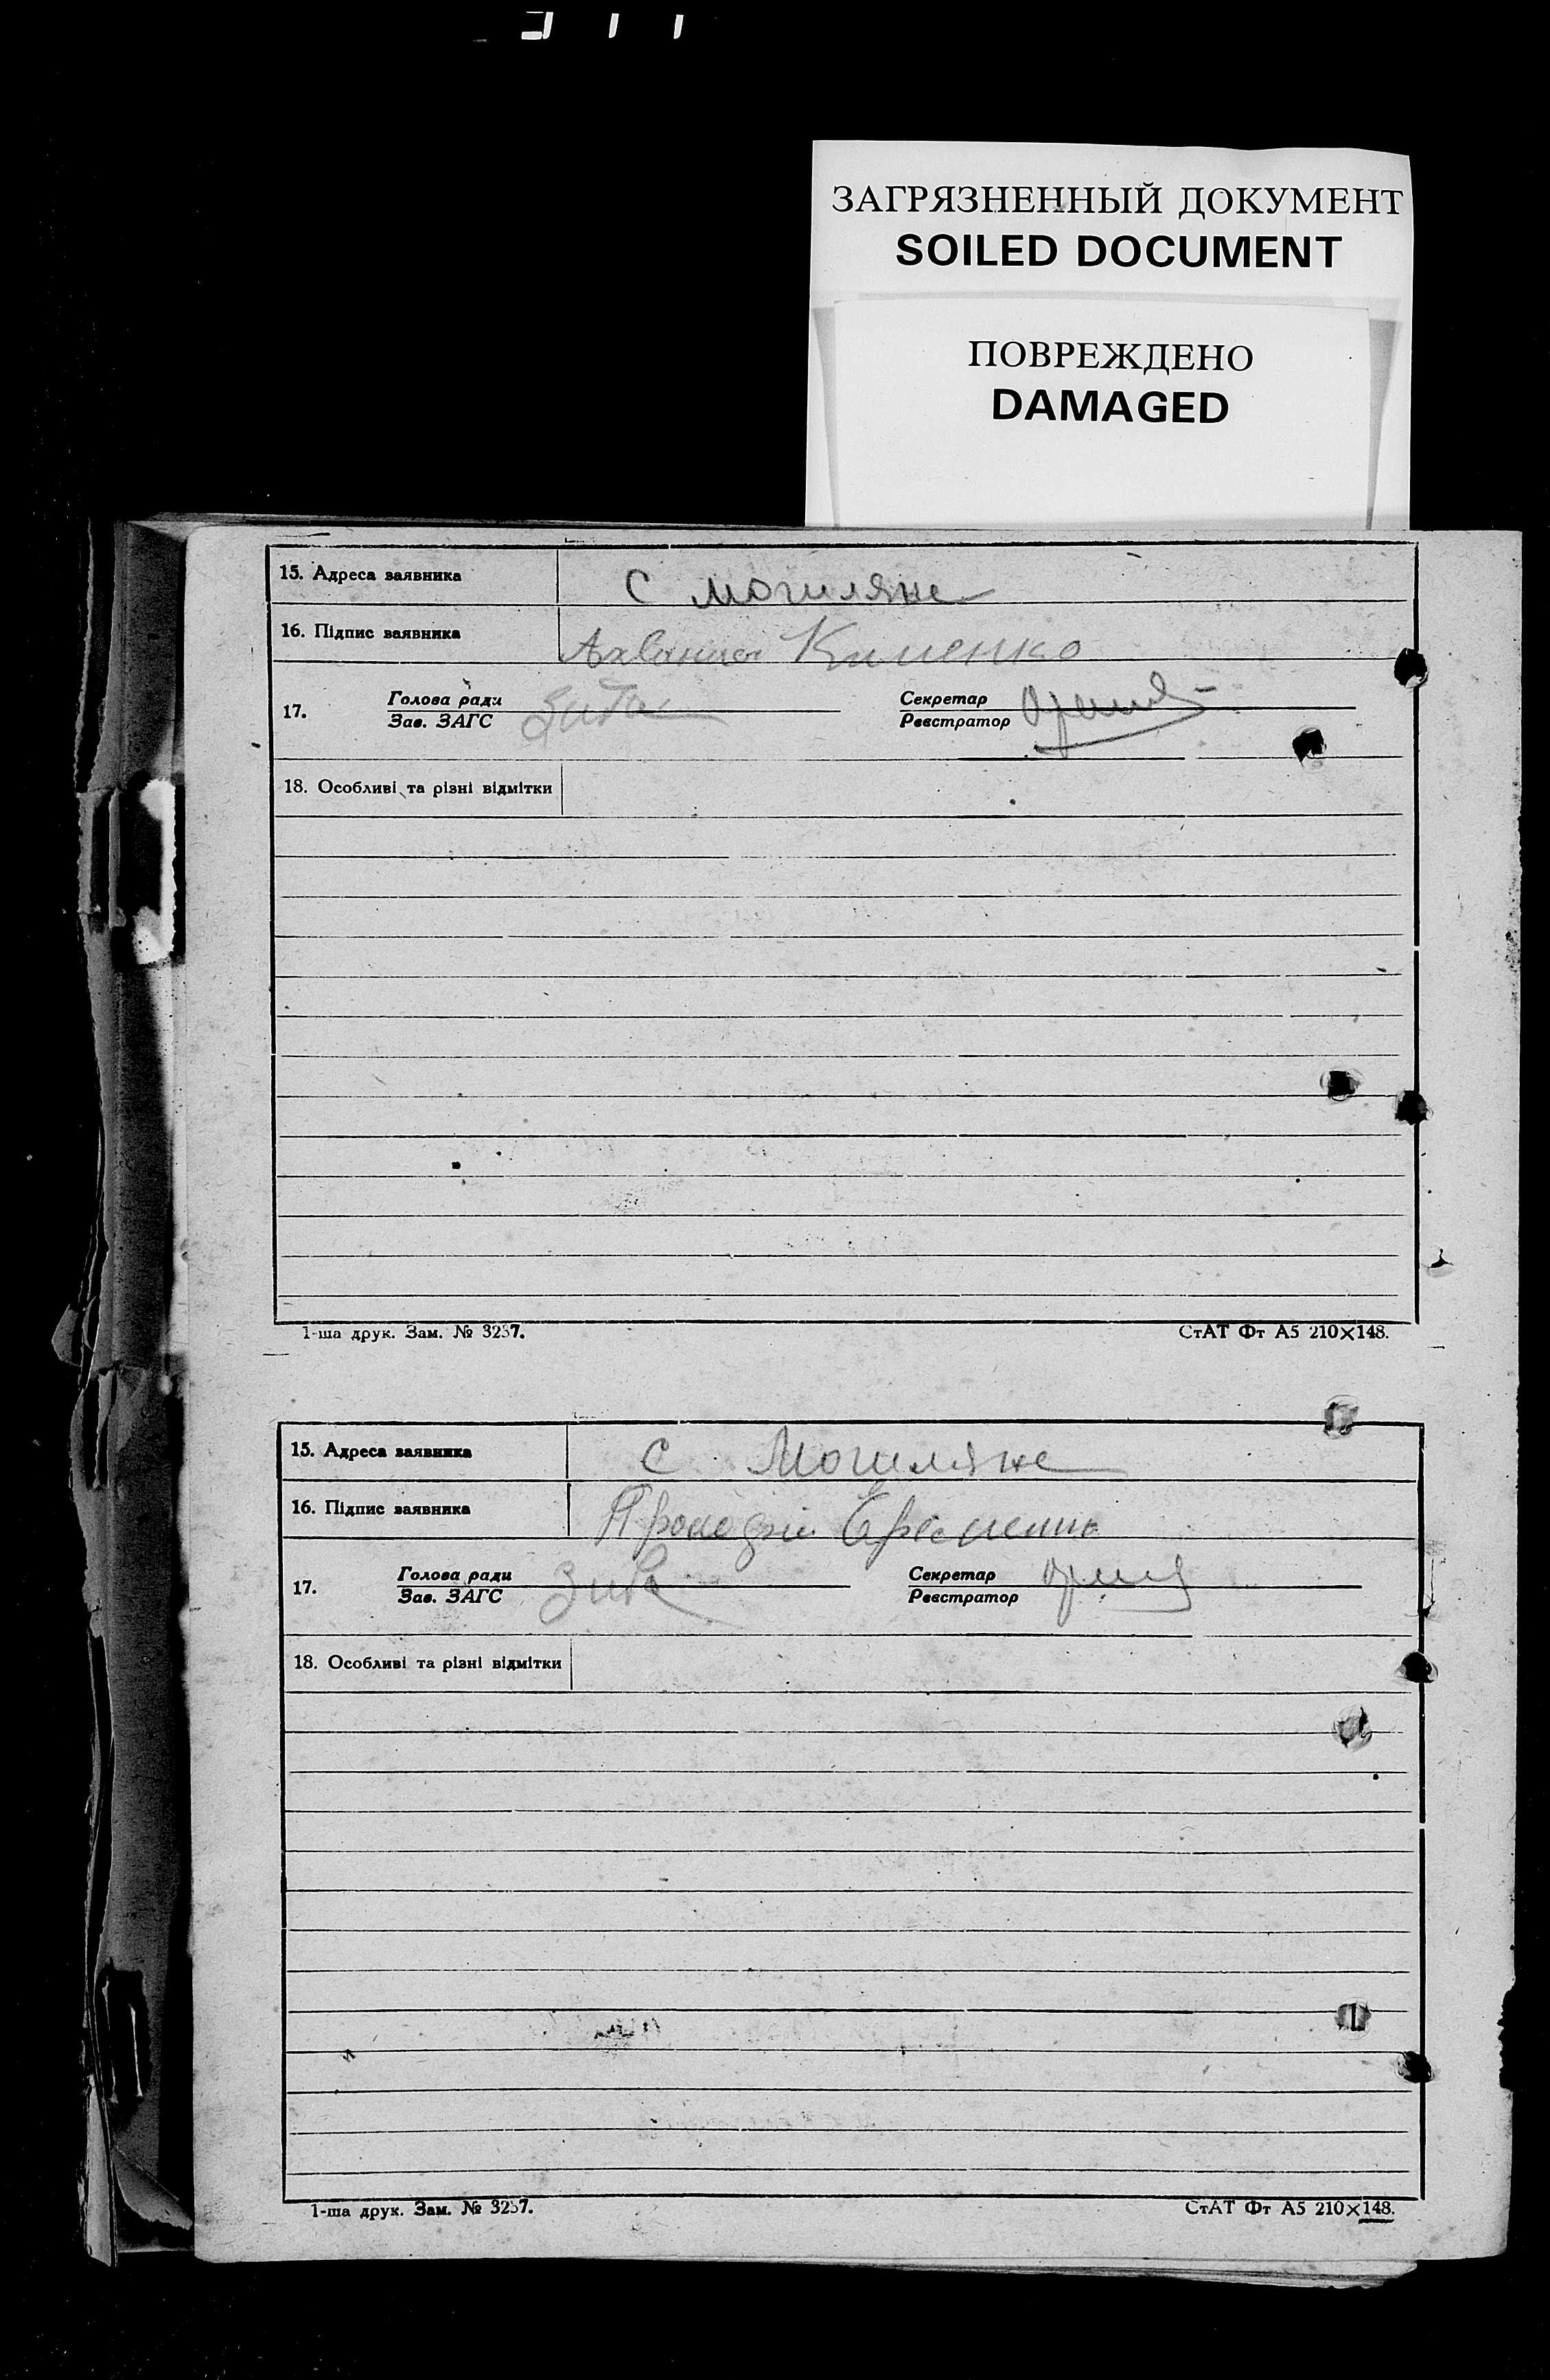 ЗАГРЯЗНЕННЫЙ ДОКУМЕНТ
SOILED DOCUMENT
ПОВРЕЖДЕНО
DAMAGED
15. Адреса заявника С могиляне
16. Підпис заявника
17. Голова ради Секретар
Зав. ЗАГС Реєстратор
18. Особливі та різні відмітки
1-ша друк. Зам. № 3257. СтАТ Фт А5 210×148.
15. Адреса заявника С Могиляне
16. Підпис заявника
17. Голова ради Зиба Секретар
Зав. ЗАГС Реєстратор
18. Особливі та різні відмітки
1-ша друк. Зам. № 3257. СтАТ Фт А5 210×148.